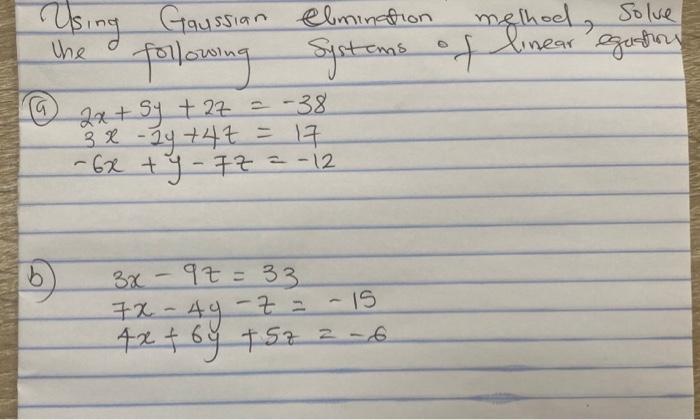 Using Gaussian elmination method, Solve
the following Systems of linear equations
(a) 2x + 5y + 2z = -38
3x - 2y + 4z = 17
-6x + y - 7z = -12
b) 3x - 9z = 33
7x - 4y - z = -15
4x + 6y + 5z = -6